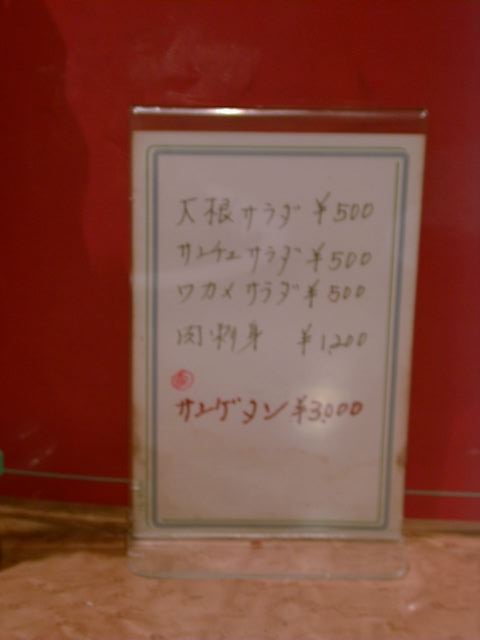 大根サラダ ¥500
サンチュサラダ ¥500
ワカメサラダ ¥500
肉刺身 ¥1,200
サムゲタン ¥3,000